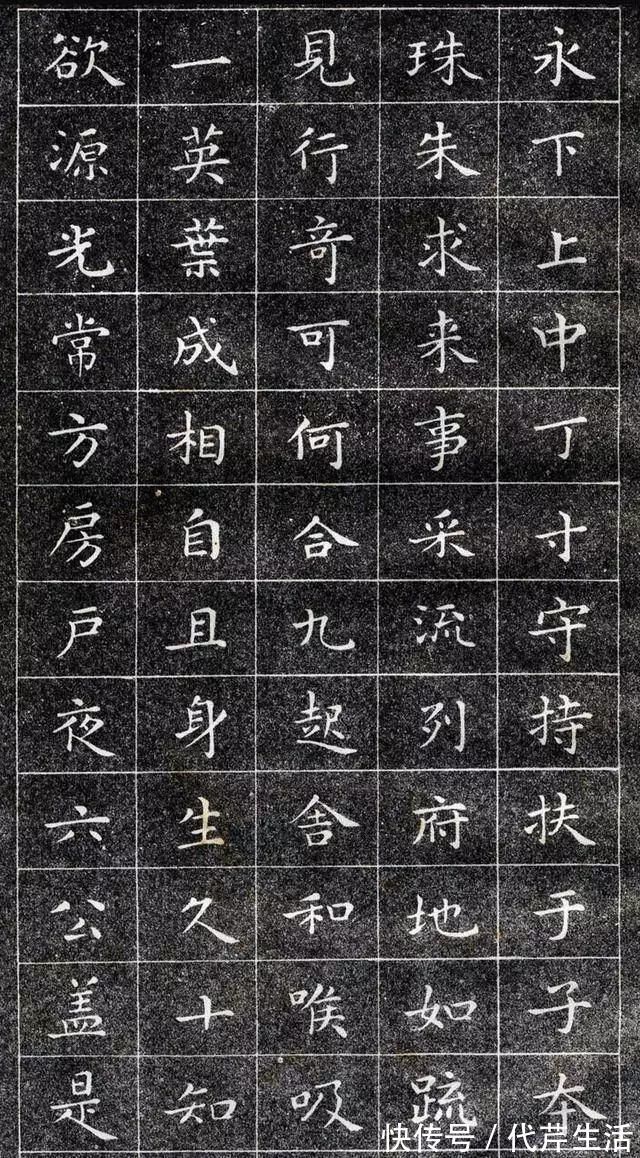 永下上中丁寸守持扶于子本
珠朱求来事采流列府地如䟽
見行竒可何合九起舍和唉吸
一英葉成相自且身生久十知
欲源光常方房户夜六公盖是
快传号/代芹生活